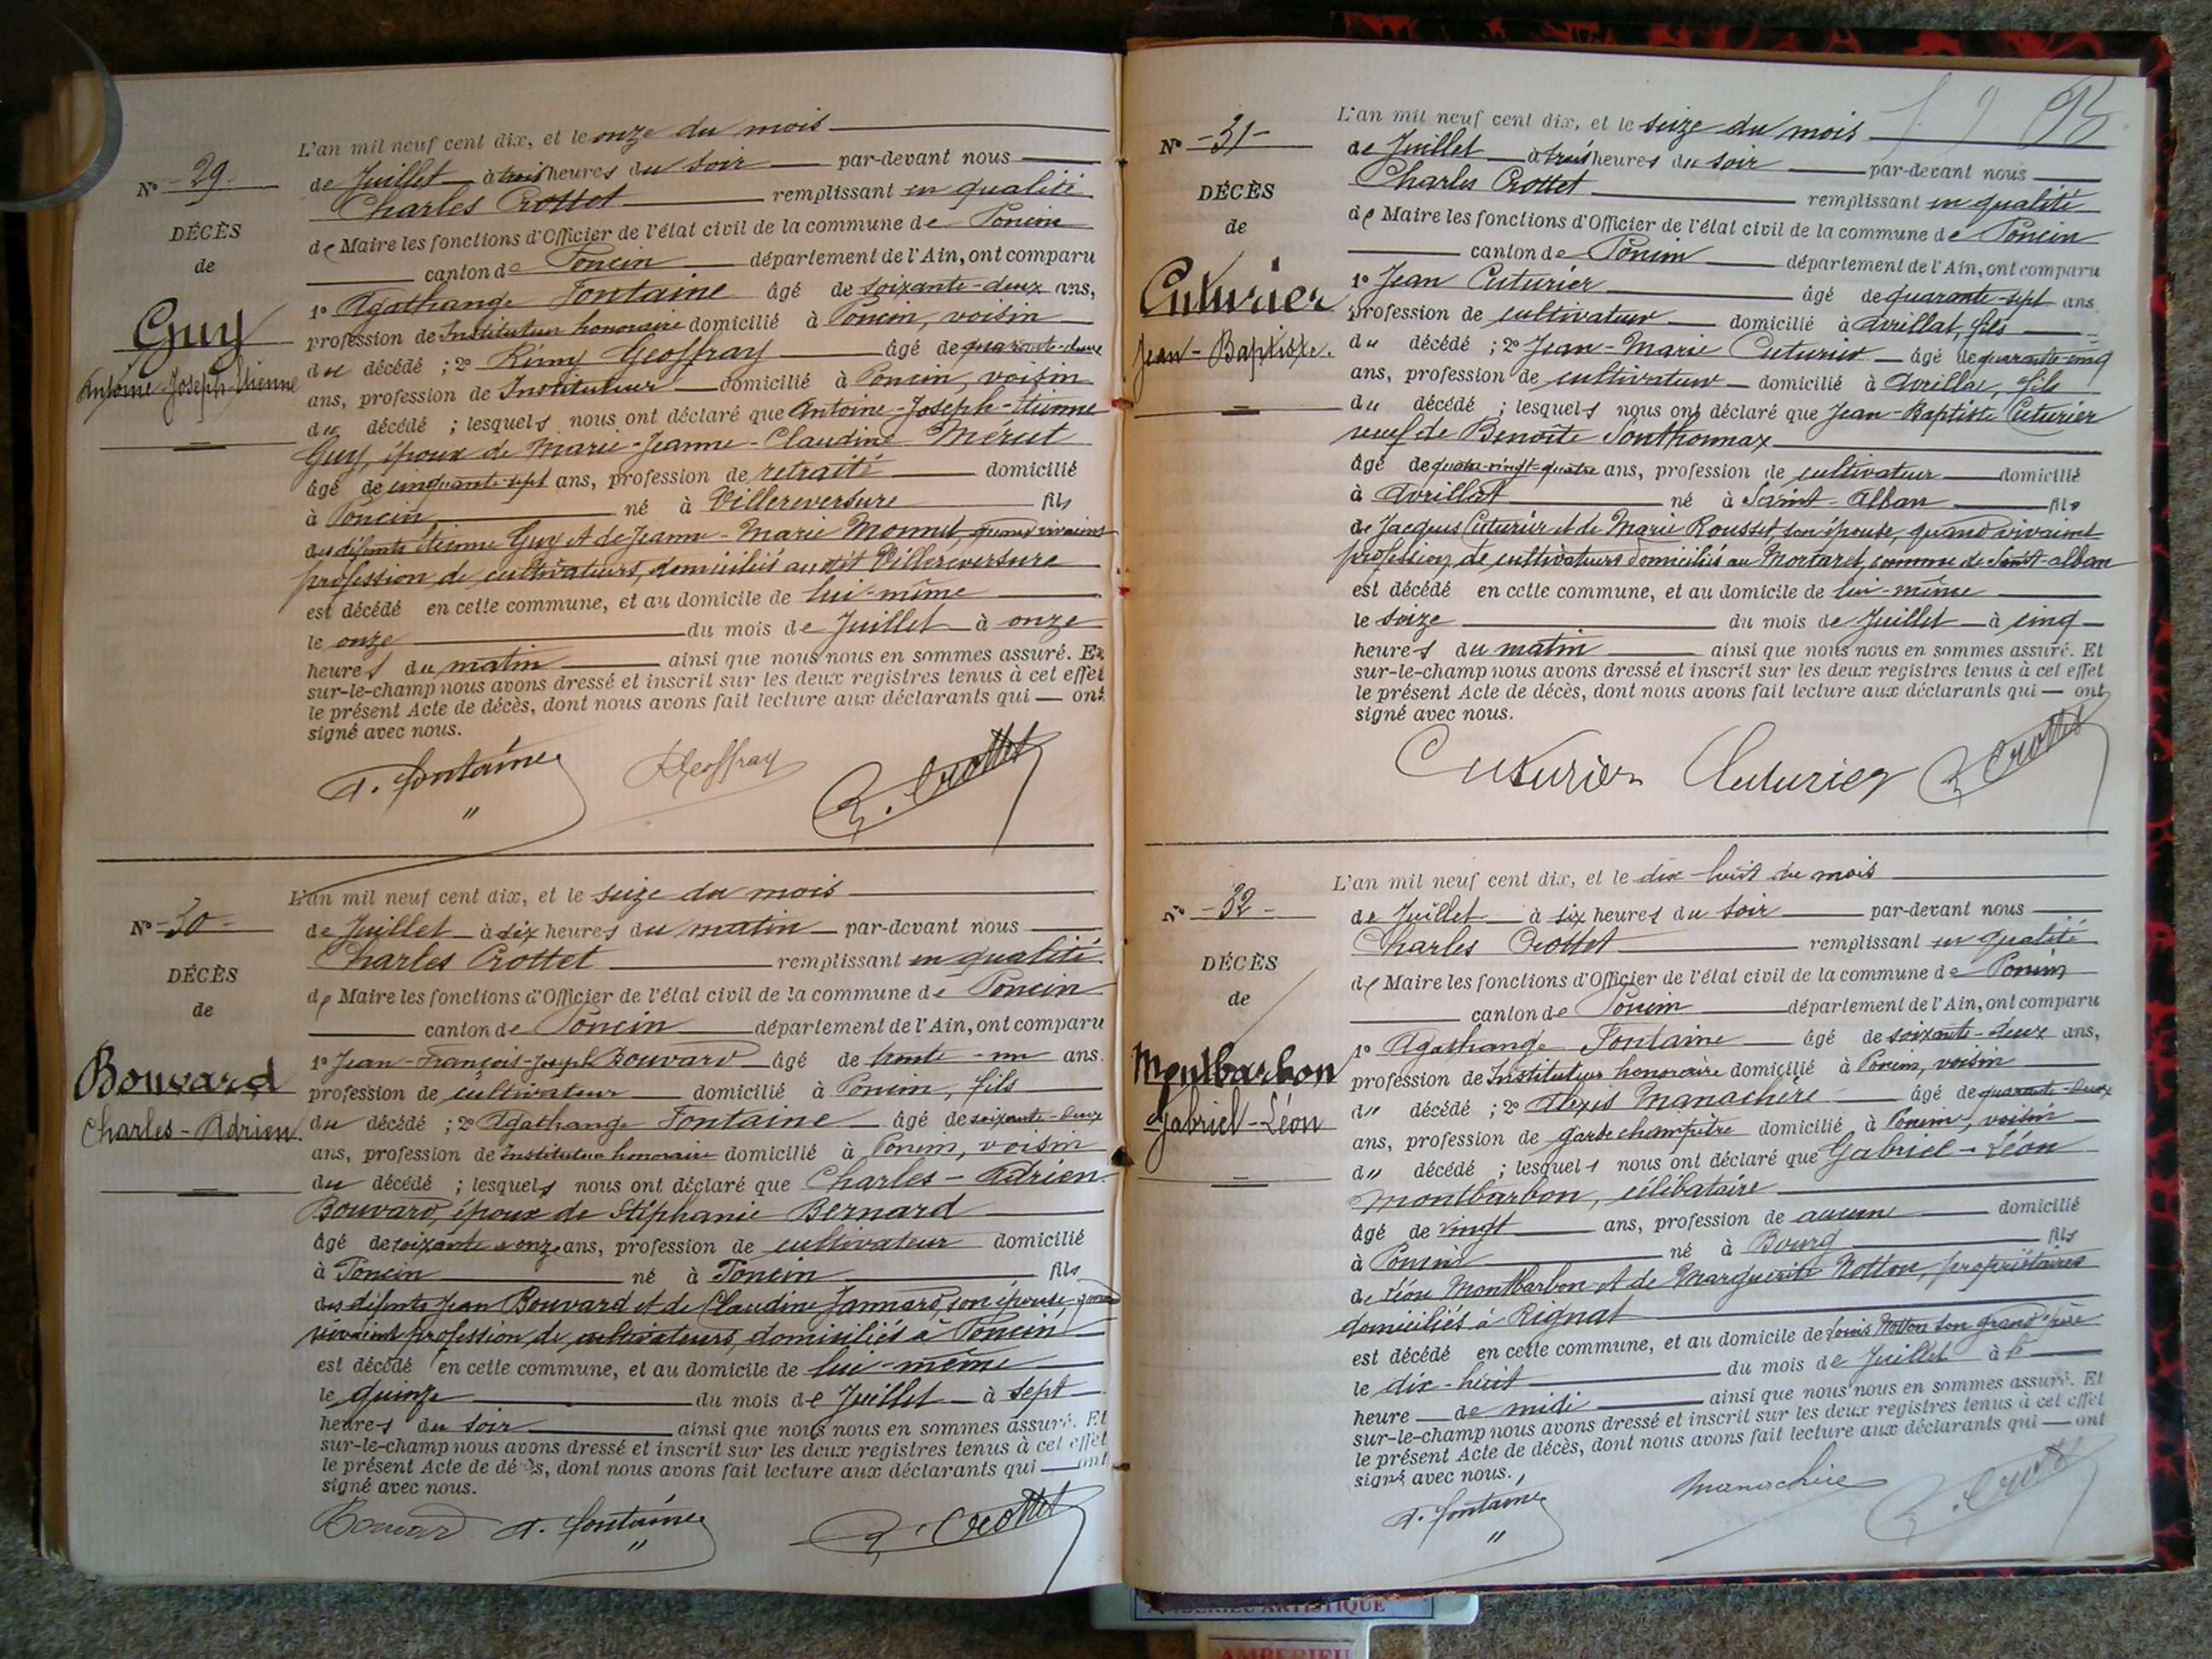 L'an mil neuf cent dix, et le onze du mois
Nº -29- de Juillet à trois heures du soir par-devant nous
Charles Crottet remplissant en qualité
DÉCÈS
de
de Maire les fonctions d'Officier de l'état civil de la commune de Poncin
canton de Poncin département de l'Ain, ont comparu
1º Agathange Fontaine âgé de soixante-deux ans,
Guy
Antoine-Joseph-Etienne
profession de Instituteur honoraire domicilié à Poncin, voisin
du décédé ; 2º Rémy Geoffray âgé de quarante-deux
ans, profession de Instituteur domicilié à Poncin, voisin
du décédé ; lesquels nous ont déclaré que Antoine-Joseph-Etienne
Guy, époux de Marie-Jeanne-Claudine
âgé de cinquante-sept ans, profession de retraité domicilié
à Poncin né à Villereversure fils
des défunts Etienne Guy et de Jeanne-Marie Monnet, quand vivaient
profession de cultivateurs, domiciliés au dit Villereversure
est décédé en cette commune, et au domicile de lui-même
le onze du mois de Juillet à onze
heures du matin ainsi que nous nous en sommes assuré. Et
sur-le-champ nous avons dressé et inscrit sur les deux registres tenus à cet effet
le présent Acte de décès, dont nous avons fait lecture aux déclarants qui — ont
signé avec nous.
A. Fontaine RGeoffray C. Crottet
L'an mil neuf cent dix, et le seize du mois
Nº -30- de Juillet à dix heures du matin par-devant nous
Charles Crottet remplissant en qualité
DÉCÈS
de
de Maire les fonctions d'Officier de l'état civil de la commune de Poncin
canton de Poncin département de l'Ain, ont comparu
1º Jean-François-Joseph Bouvard âgé de trente-un ans.
Bouvard
Charles-Adrien.
profession de cultivateur domicilié à Poncin, fils
du décédé ; 2º Agathange Fontaine âgé de soixante-deux
ans, profession de Instituteur honoraire domicilié à Poncin, voisin
du décédé ; lesquels nous ont déclaré que Charles-Adrien
Bouvard, époux de Stéphanie Bernard
âgé de soixante-onze ans, profession de cultivateur domicilié
à Poncin né à Poncin fils
des défunts Jean Bouvard et de Claudine Jannard, son épouse, quand
vivaient profession de cultivateurs, domiciliés à Poncin
est décédé en cette commune, et au domicile de lui-même
le quinze du mois de Juillet à sept
heures du soir ainsi que nous nous en sommes assuré. Et
sur-le-champ nous avons dressé et inscrit sur les deux registres tenus à cet effet
le présent Acte de décès, dont nous avons fait lecture aux déclarants qui — ont
signé avec nous.
Bouvard A. Fontaine C. Crottet
L'an mil neuf cent dix, et le seize du mois
Nº -31- de Juillet à trois heures du soir par-devant nous
Charles Crottet remplissant en qualité
DÉCÈS
de
de Maire les fonctions d'Officier de l'état civil de la commune de Poncin
canton de Poncin département de l'Ain, ont comparu
1º Jean Cuturier âgé de quarante-sept ans
Cuturier
Jean-Baptiste.
profession de cultivateur domicilié à Avrillat, fils
du décédé ; 2º Jean-Marie Cuturier âgé de quarante-cinq
ans, profession de cultivateur domicilié à Avrillat, fils
du décédé ; lesquels nous ont déclaré que Jean-Baptiste Cuturier
veuf de Benoîte Sonthonnax
âgé de quatre-vingt-quatre ans, profession de cultivateur domicilié
à Avrillat né à Saint-Alban fils
de Jacques Cuturier et de Marie Rousset, son épouse, quand vivaient
profession de cultivateurs domiciliés au Mortaret, commune de Saint-alban
est décédé en cette commune, et au domicile de lui-même
le seize du mois de Juillet à cinq
heures du matin ainsi que nous nous en sommes assuré. Et
sur-le-champ nous avons dressé et inscrit sur les deux registres tenus à cet effet
le présent Acte de décès, dont nous avons fait lecture aux déclarants qui — ont
signé avec nous.
Cuturier Cuturier C. Crottet
L'an mil neuf cent dix, et le dix-huit du mois
Nº -32- de Juillet à six heures du soir par-devant nous
Charles Crottet remplissant en qualité
DÉCÈS
de
de Maire les fonctions d'Officier de l'état civil de la commune de Poncin
canton de Poncin département de l'Ain, ont comparu
1º Agathange Fontaine âgé de soixante-deux ans,
Montbarbon
Gabriel-Léon
profession de Instituteur honoraire domicilié à Poncin, voisin
du décédé ; 2º Alexis Manachère âgé de quarante-deux
ans, profession de garde champêtre domicilié à Poncin, voisin
du décédé ; lesquels nous ont déclaré que Gabriel-Léon
Montbarbon, célibataire
âgé de vingt ans, profession de aucune domicilié
à Poncin né à Bourg fils
de Léon Montbarbon et de Marguerite Notton, propriétaires
domiciliés à Rignat
est décédé en cette commune, et au domicile de Louis Notton son grand'père
le dix-huit du mois de Juillet à
heure de midi ainsi que nous nous en sommes assuré. Et
sur-le-champ nous avons dressé et inscrit sur les deux registres tenus à cet effet
le présent Acte de décès, dont nous avons fait lecture aux déclarants qui — ont
signé avec nous.
A. Fontaine Manachère C. Crottet
AMBERIEU ARTISTIQUE
AMBERIEU